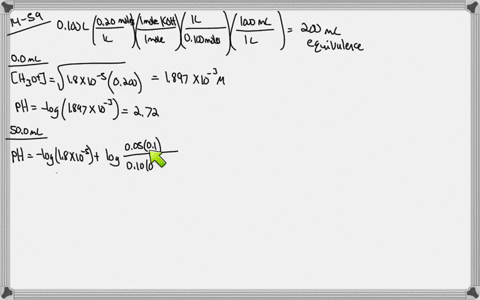 14-59
0.100L (0.20 mole / 1L) (1mole KOH / 1mole) (1L / 0.100 mole) (1000 mL / 1L) = 200 mL
equivalence
0.0mL
[H3O+] = √1.8x10^-5 (0.200) = 1.897 x10^-3 M
PH = -log(1.897 x10^-3) = 2.72
50.0mL
PH = -log(1.8x10^-5) + log 0.05(0.1) / 0.10(0